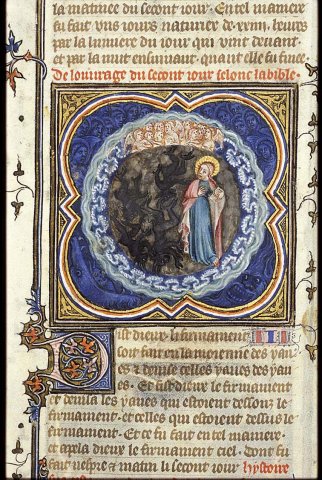 la matinee du secont iour. En tel maniere
su fait vns iours naturiex de xxiiii. heures
par la lumiere du iour qui vint deuant
et par la nuit ensuiuant quant elle fu finee
de louurage du secont iour selonc la bible.
Dist dieux li firmamens
soit fait en la moienne des yau
es & deuise celles yaues des yau
es. Et fist dieux le firmament
et deuisa les yaues qui estoient dessouz le
firmament. et celles qui estoient dessus le
firmament. Et ce fu fait en tel maniere.
et apela dieux le firmament ciel. Dont fu
fait vespre & matin li secont iour hystoire